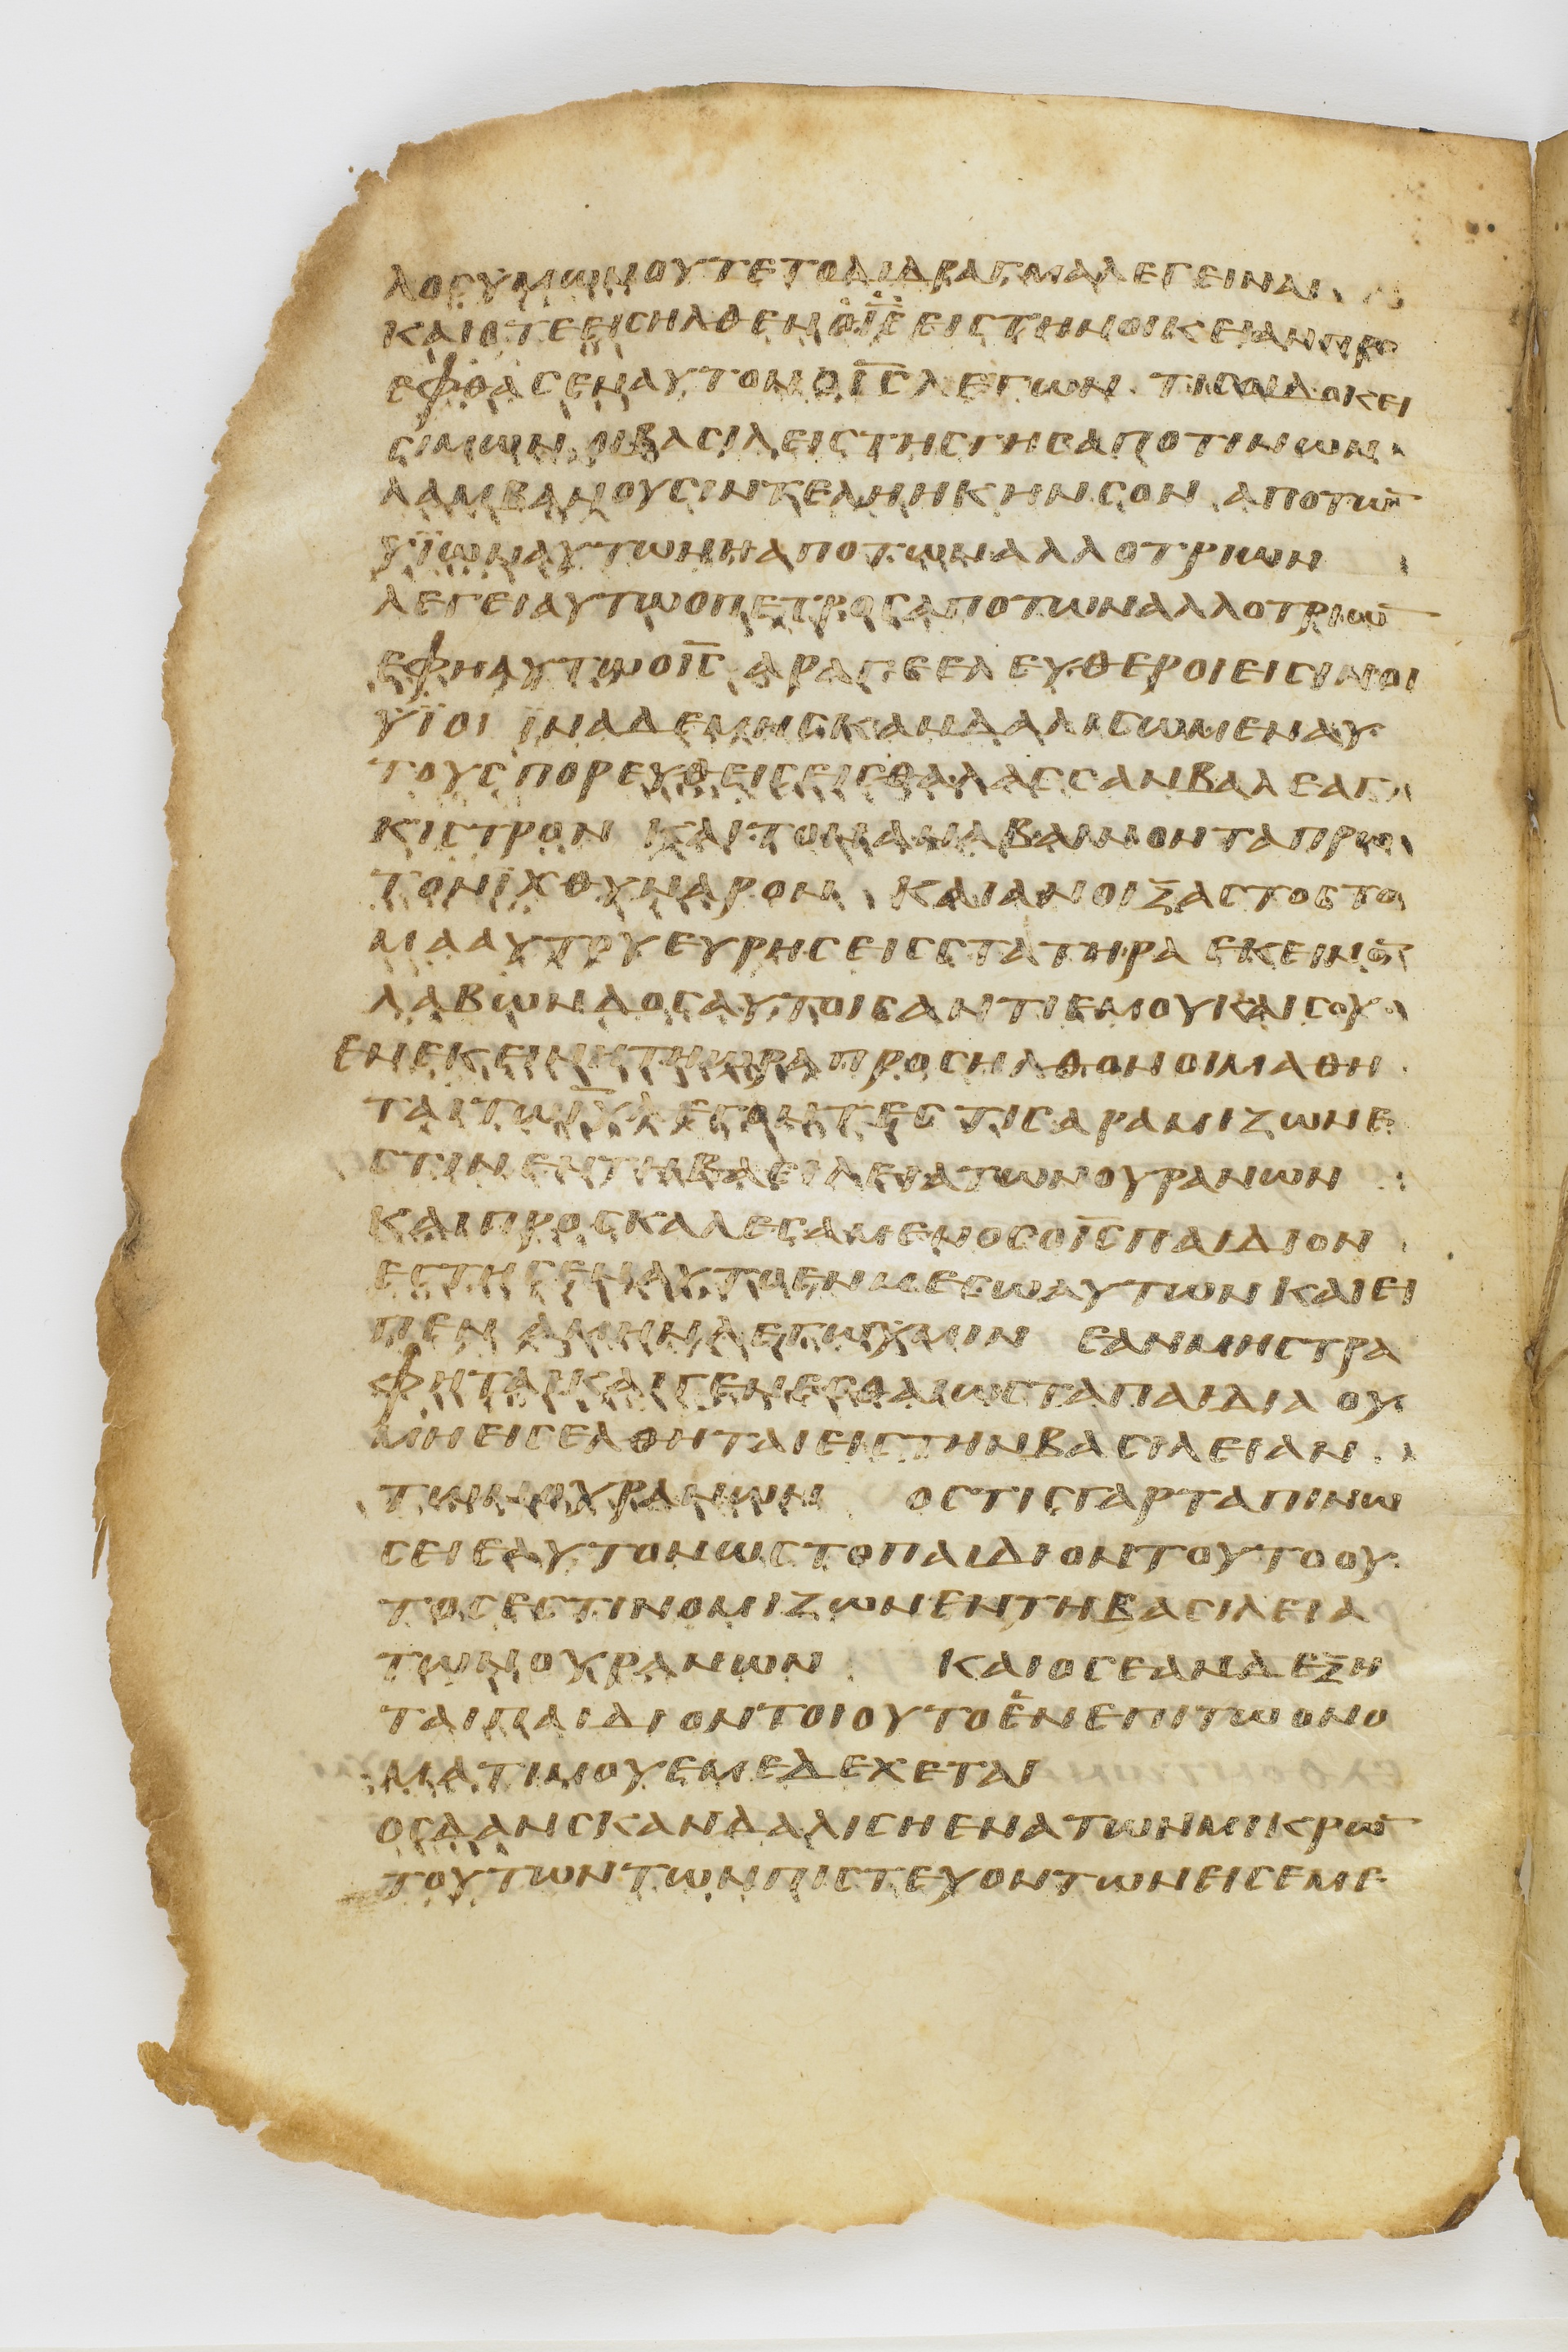 ΛΟCΥΜΩΝΟΥΤΕΤΟΔΙΔΡΑΓΜΑΛΕΓΕΙΝΑΙ
ΚΑΙΟΤΕΕΙCΗΛΘΕΝΟΙ̅C̅ΕΙCΤΗΝΟΙΚΕΙΑΝΠΡΟ
ΕΦΘΑCΕΝΑΥΤΟΝΟΙ̅C̅ΛΕΓΩΝ ΤΙCΟΙΔΟΚΕΙ
CΙΜΩΝ ΟΙΒΑCΙΛΕΙCΤΗCΓΗCΑΠΟΤΙΝΩΝ
ΛΑΜΒΑΝΟΥCΙΝΤΕΛΗΗΚΗΝCΟΝ ΑΠΟΤΩ̅
ΫΪΩΝΑΥΤΩΝΗΑΠΟΤΩΝΑΛΛΟΤΡΙΩΝ
ΛΕΓΕΙΑΥΤΩΟΠΕΤΡΟCΑΠΟΤΩΝΑΛΛΟΤΡΙΩ̅
ΕΦΗΑΥΤΩΟΙ̅C̅ΑΡΑΓΕΕΛΕΥΘΕΡΟΙΕΙCΙΝΟΙ
ΫΪΟΙ ΪΝΑΔΕΜΗCΚΑΝΔΑΛΙCΩΜΕΝΑΥ
ΤΟΥCΠΟΡΕΥΘΕΙCΕΙCΘΑΛΑCCΑΝΒΑΛΕΑΓ
ΚΙCΤΡΟΝ ΚΑΙΤΟΝΑΝΑΒΑΝΟΝΤΑΠΡΩ
ΤΟΝΪΧΘΥΝΑΡΟΝ ΚΑΙΑΝΟΙΞΑCΤΟCΤΟ
ΜΑΑΥΤΟΥΕΥΡΗCΕΙCCΤΑΤΗΡΑΕΚΕΙΝΟ̅
ΛΑΒΩΝΔΟCΑΥΤΟΙCΑΝΤΙΕΜΟΥΚΑΙCΟΥ
ΕΝΕΚΕΙΝΗΤΗΩΡΑΠΡΟCΗΛΘΟΝΟΙΜΑΘΗ
ΤΑΙΤΩΙ̅Υ̅ΛΕΓΟΝΤΕCΤΙCΑΡΑΜΙΖΩΝΕ
CΤΙΝΕΝΤΗΒΑCΙΛΕΙΑΤΩΝΟΥΡΑΝΩΝ
ΚΑΙΠΡΟCΚΑΛΕCΑΜΕΝΟCΟΙ̅C̅ΠΑΙΔΙΟΝ
ΕCΤΗCΕΝΑΥΤΟΕΝΜΕCΩΑΥΤΩΝ ΚΑΙΕΙ
ΠΕΝΑΜΗΝΛΕΓΩΥΜΙΝ ΕΑΝΜΗCΤΡΑ
ΦΗΤΑΙΚΑΙΓΕΝΕCΘΑΙΩCΤΑΠΑΙΔΙΑΟΥ
ΜΗΕΙCΕΛΘΗΤΑΙΕΙCΤΗΝΒΑCΙΛΕΙΑΝ
ΤΩΝΟΥΡΑΝΩΝ ΟCΤΙCΓΑΡΤΑΠΙΝΩ
CΕΙΕΑΥΤΟΝΩCΤΟΠΑΙΔΙΟΝΤΟΥΤΟΟΥ
ΤΟCΕCΤΙΝΟΜΙΖΩΝΕΝΤΗΒΑCΙΛΕΙΑ
ΤΩΝΟΥΡΑΝΩΝ ΚΑΙΟCΕΑΝΔΕΞΗ
ΤΑΙΠΑΙΔΙΟΝΤΟΙΟΥΤΟΕΝΕΠΙΤΩΟΝΟ
ΜΑΤΙΜΟΥΕΜΕΔΕΧΕΤΑΙ
ΟCΔΑΝCΚΑΝΔΑΛΙCΗΕΝΑΤΩΝΜΙΚΡΩ̅
ΤΟΥΤΩΝΤΩΝΠΙCΤΕΥΟΝΤΩΝΕΙCΕΜΕ